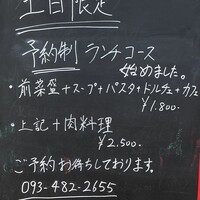 土日限定
予約制 ランチコース
始めました。
・前菜盛+スープ+パスタ+ドルチェ+カフェ
¥1.800.
・上記+肉料理
¥2.500.
ご予約お待ちしております。
093-482-2655